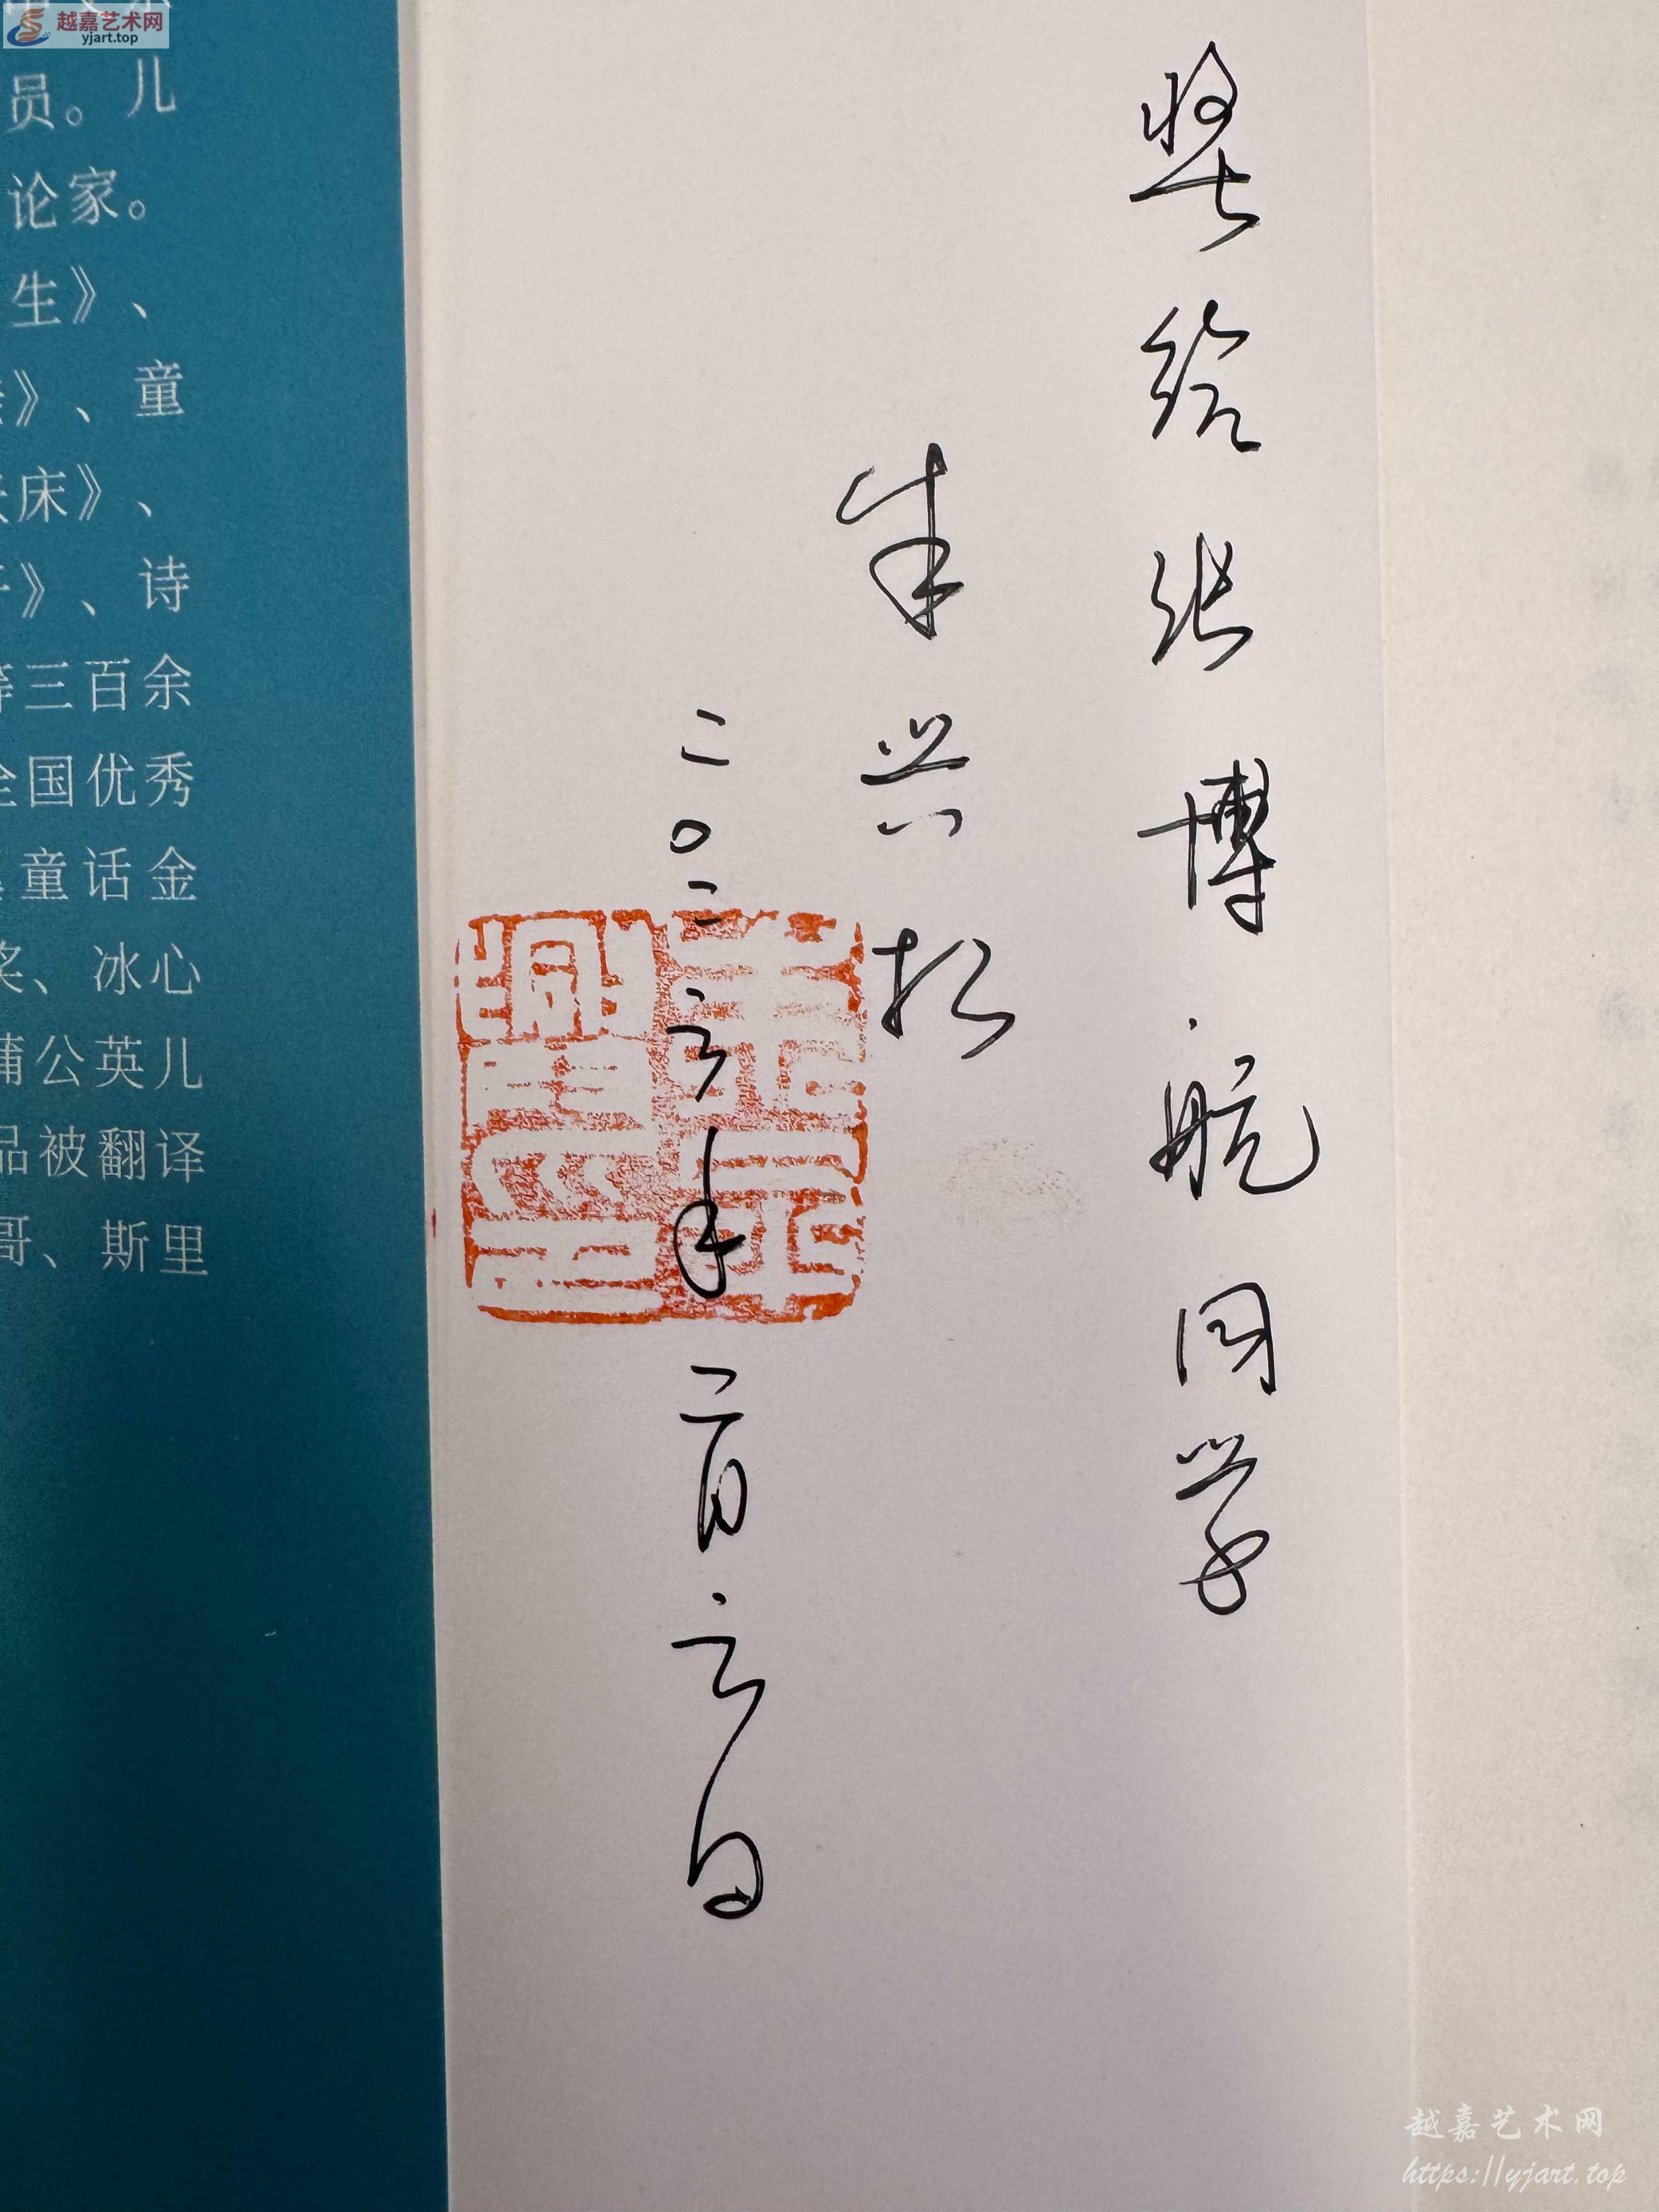 越嘉艺术网
yjart.top
员。儿
论家。
生》、
》、童
床》、
》、诗
等三百余
全国优秀
童话金
奖、冰心
蒲公英儿
品被翻译
哥、斯里
奖给张博航同学
朱兴松
二〇二三年二月三日
越嘉艺术网
https://yjart.top